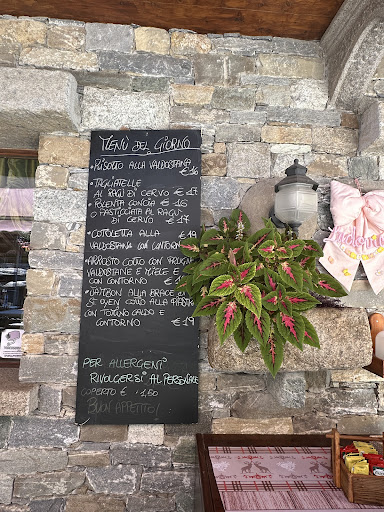 MENÙ DEL GIORNO
• RISOTTO ALLA VALDOSTANA
€ 16
• TAGLIATELLE
AL RAGÙ DI CERVO € 17
POLENTA CONCIA € 16
O PASTICCIATA AL RAGÙ
DI CERVO € 17
• COTOLETTA ALLA € 19
VALDOSTANA CON CONTORNO
ARROSTO COTTO CON PRUGNE
VALDOSTANE E MIELE E
CON CONTORNO € 18
ALLA BRACE
CON
CON TOMINO CALDO E
CONTORNO € 19
PER ALLERGENI
RIVOLGERSI AL PERSONALE
COPERTO € 1,50
BUON APPETITO!